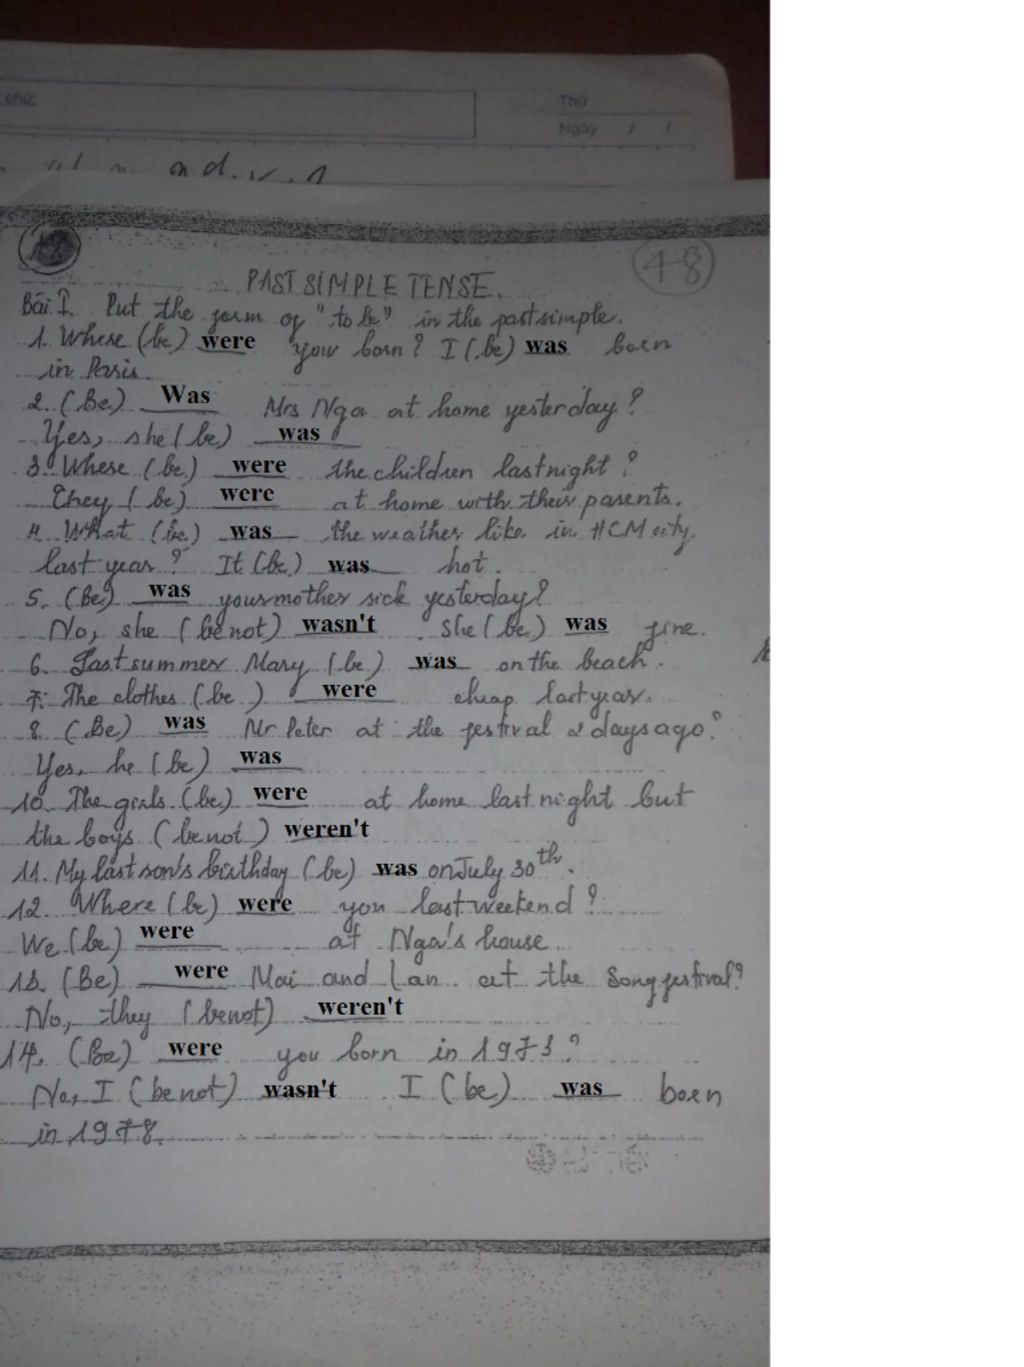 chú:
Thứ
Ngày / /
48
PAST SIMPLE TENSE.
Bài I. Put the form of "to be" in the past simple.
1. Where (be) were you born? I (be) was born
in Paris.
2. (Be) Was Mrs Nga at home yesterday?
Yes, she (be) was
3. Where (be) were the children last night?
They (be) were at home with their parents.
4. What (be) was the weather like in HCM city
last year? It (be) was hot.
5. (Be) was your mother sick yesterday?
No, she (be not) wasn't. She (be) was fine.
6. Last summer Mary (be) was on the beach.
7. The clothes (be) were cheap last year.
8. (Be) was Mr Peter at the festival 2 days ago?
Yes, he (be) was
10. The girls (be) were at home last night but
the boys (be not) weren't
11. My last son's birthday (be) was on July 30th.
12. Where (be) were you last weekend?
We (be) were at Nga's house.
13. (Be) were Mai and Lan at the Song festival?
No, they (be not) weren't
14. (Be) were you born in 1973?
No, I (be not) wasn't I (be) was born
in 1978.